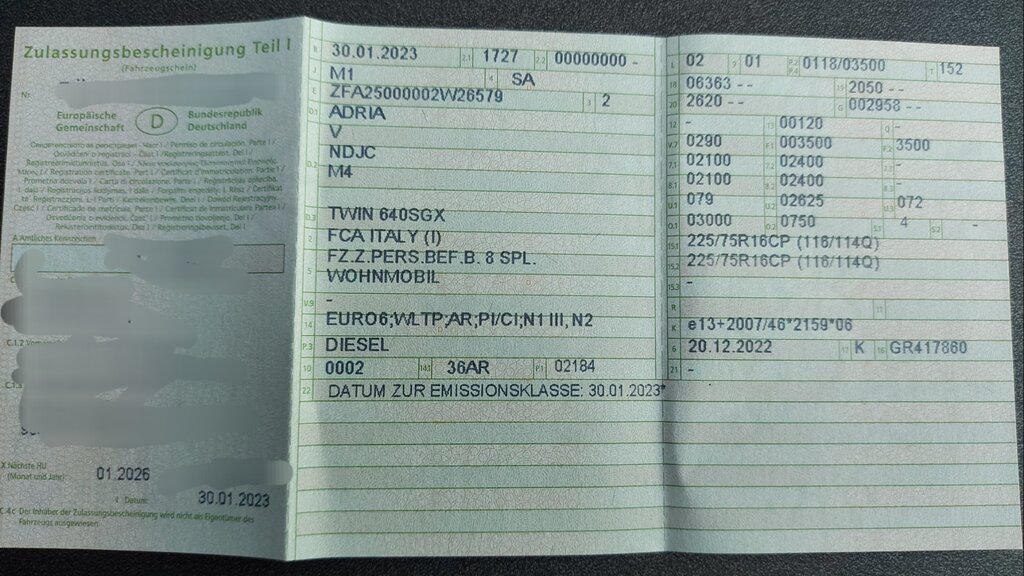 Zulassungsbescheinigung Teil I
(Fahrzeugschein)
Nr.
Europäische Gemeinschaft
D
Bundesrepublik Deutschland
A Amtliches Kennzeichen
C.1.2
C.1.3
X Nächste HU (Monat und Jahr)
01.2026
I Datum:
30.01.2023
C.4c Der Inhaber der Zulassungsbescheinigung wird nicht als Eigentümer des
Fahrzeugs ausgewiesen.
B 30.01.2023 2.1 1727 2.2 00000000 -
J M1 4 SA
E ZFA25000002W26579 3 2
D.1 ADRIA
V
D.2 NDJC
M4
D.3 TWIN 640SGX
2 FCA ITALY (I)
5 FZ.Z.PERS.BEF.B. 8 SPL.
WOHNMOBIL
V.9 -
14 EURO6;WLTP;AR;PI/CI;N1 III, N2
P.3 DIESEL
10 0002 14.1 36AR P.1 02184
22 DATUM ZUR EMISSIONSKLASSE: 30.01.2023*
L 02 9 01 P.2 P.4 0118/03500 T 152
18 06363 - - 19 2050 - -
20 2620 - - G 002958 - -
12 - 13 00120 Q -
V.7 0290 F.1 003500 F.2 3500
7.1 02100 7.2 02400 7.3 -
8.1 02100 8.2 02400 8.3 -
U.1 079 U.2 02625 U.3 072
O.1 03000 O.2 0750 S.1 4 S.2 -
15.1 225/75R16CP (116/114Q)
15.2 225/75R16CP (116/114Q)
15.3 -
R 11
K e13*2007/46*2159*06
6 20.12.2022 17 K 16 GR417860
21 -